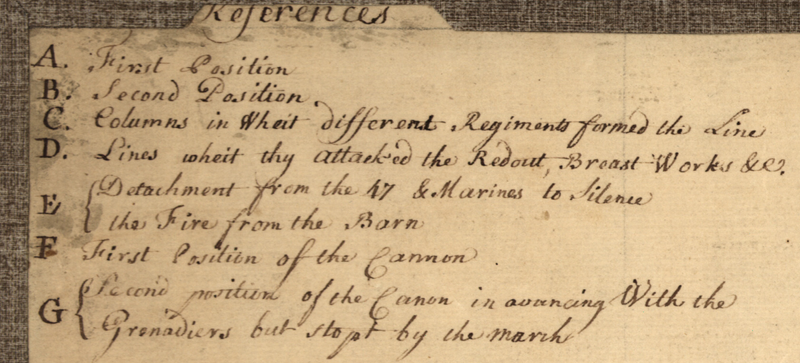 References
A. First Position
B. Second Position
C. Columns in Wheit different Regiments formed the Line
D. Lines wheit thy attack'ed the Redout, Breast Works &c.
E { Detachment from the 47 & Marines to Silence
the Fire from the Barn
F First Position of the Cannon
G { Second position of the Canon in avancing With the
Grenadiers but stopt by the march